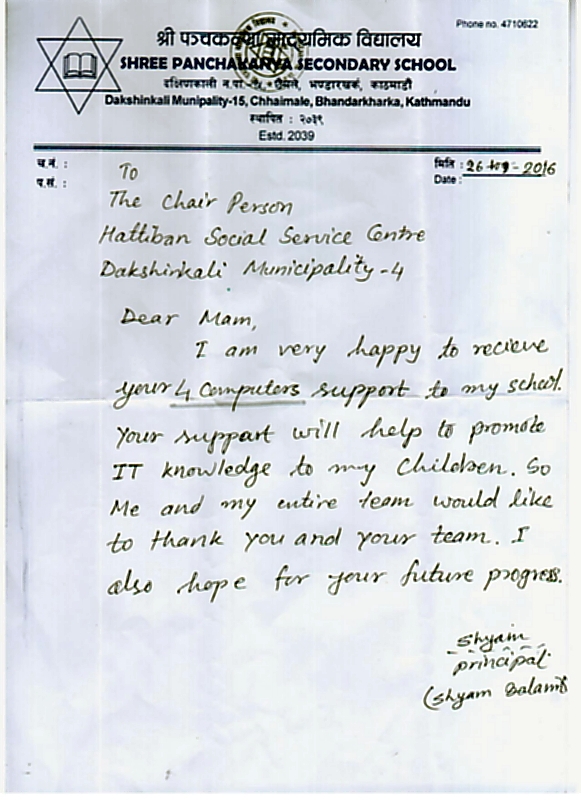 Phone no. 4710622
श्री पञ्चकन्या माध्यमिक विद्यालय
SHREE PANCHAKANYA SECONDARY SCHOOL
दक्षिणकाली न.पा.-१५, छैमले, भण्डारखर्क, काठमाडौं
Dakshinkali Munipality-15, Chhaimale, Bhandarkharka, Kathmandu
स्थापित : २०३९
Estd. 2039
च.नं. :
प.सं. :
मिति :
Date : 26 Aug - 2016
To
The Chair Person
Hattiban Social Service Centre
Dakshinkali Municipality - 4
Dear Mam,
I am very happy to recieve
your 4 Computers support to my school.
Your support will help to promote
IT knowledge to my Children. So
Me and my entire team would like
to thank you and your team. I
also hope for your future progress.
Shyam
principal
(Shyam Balami)